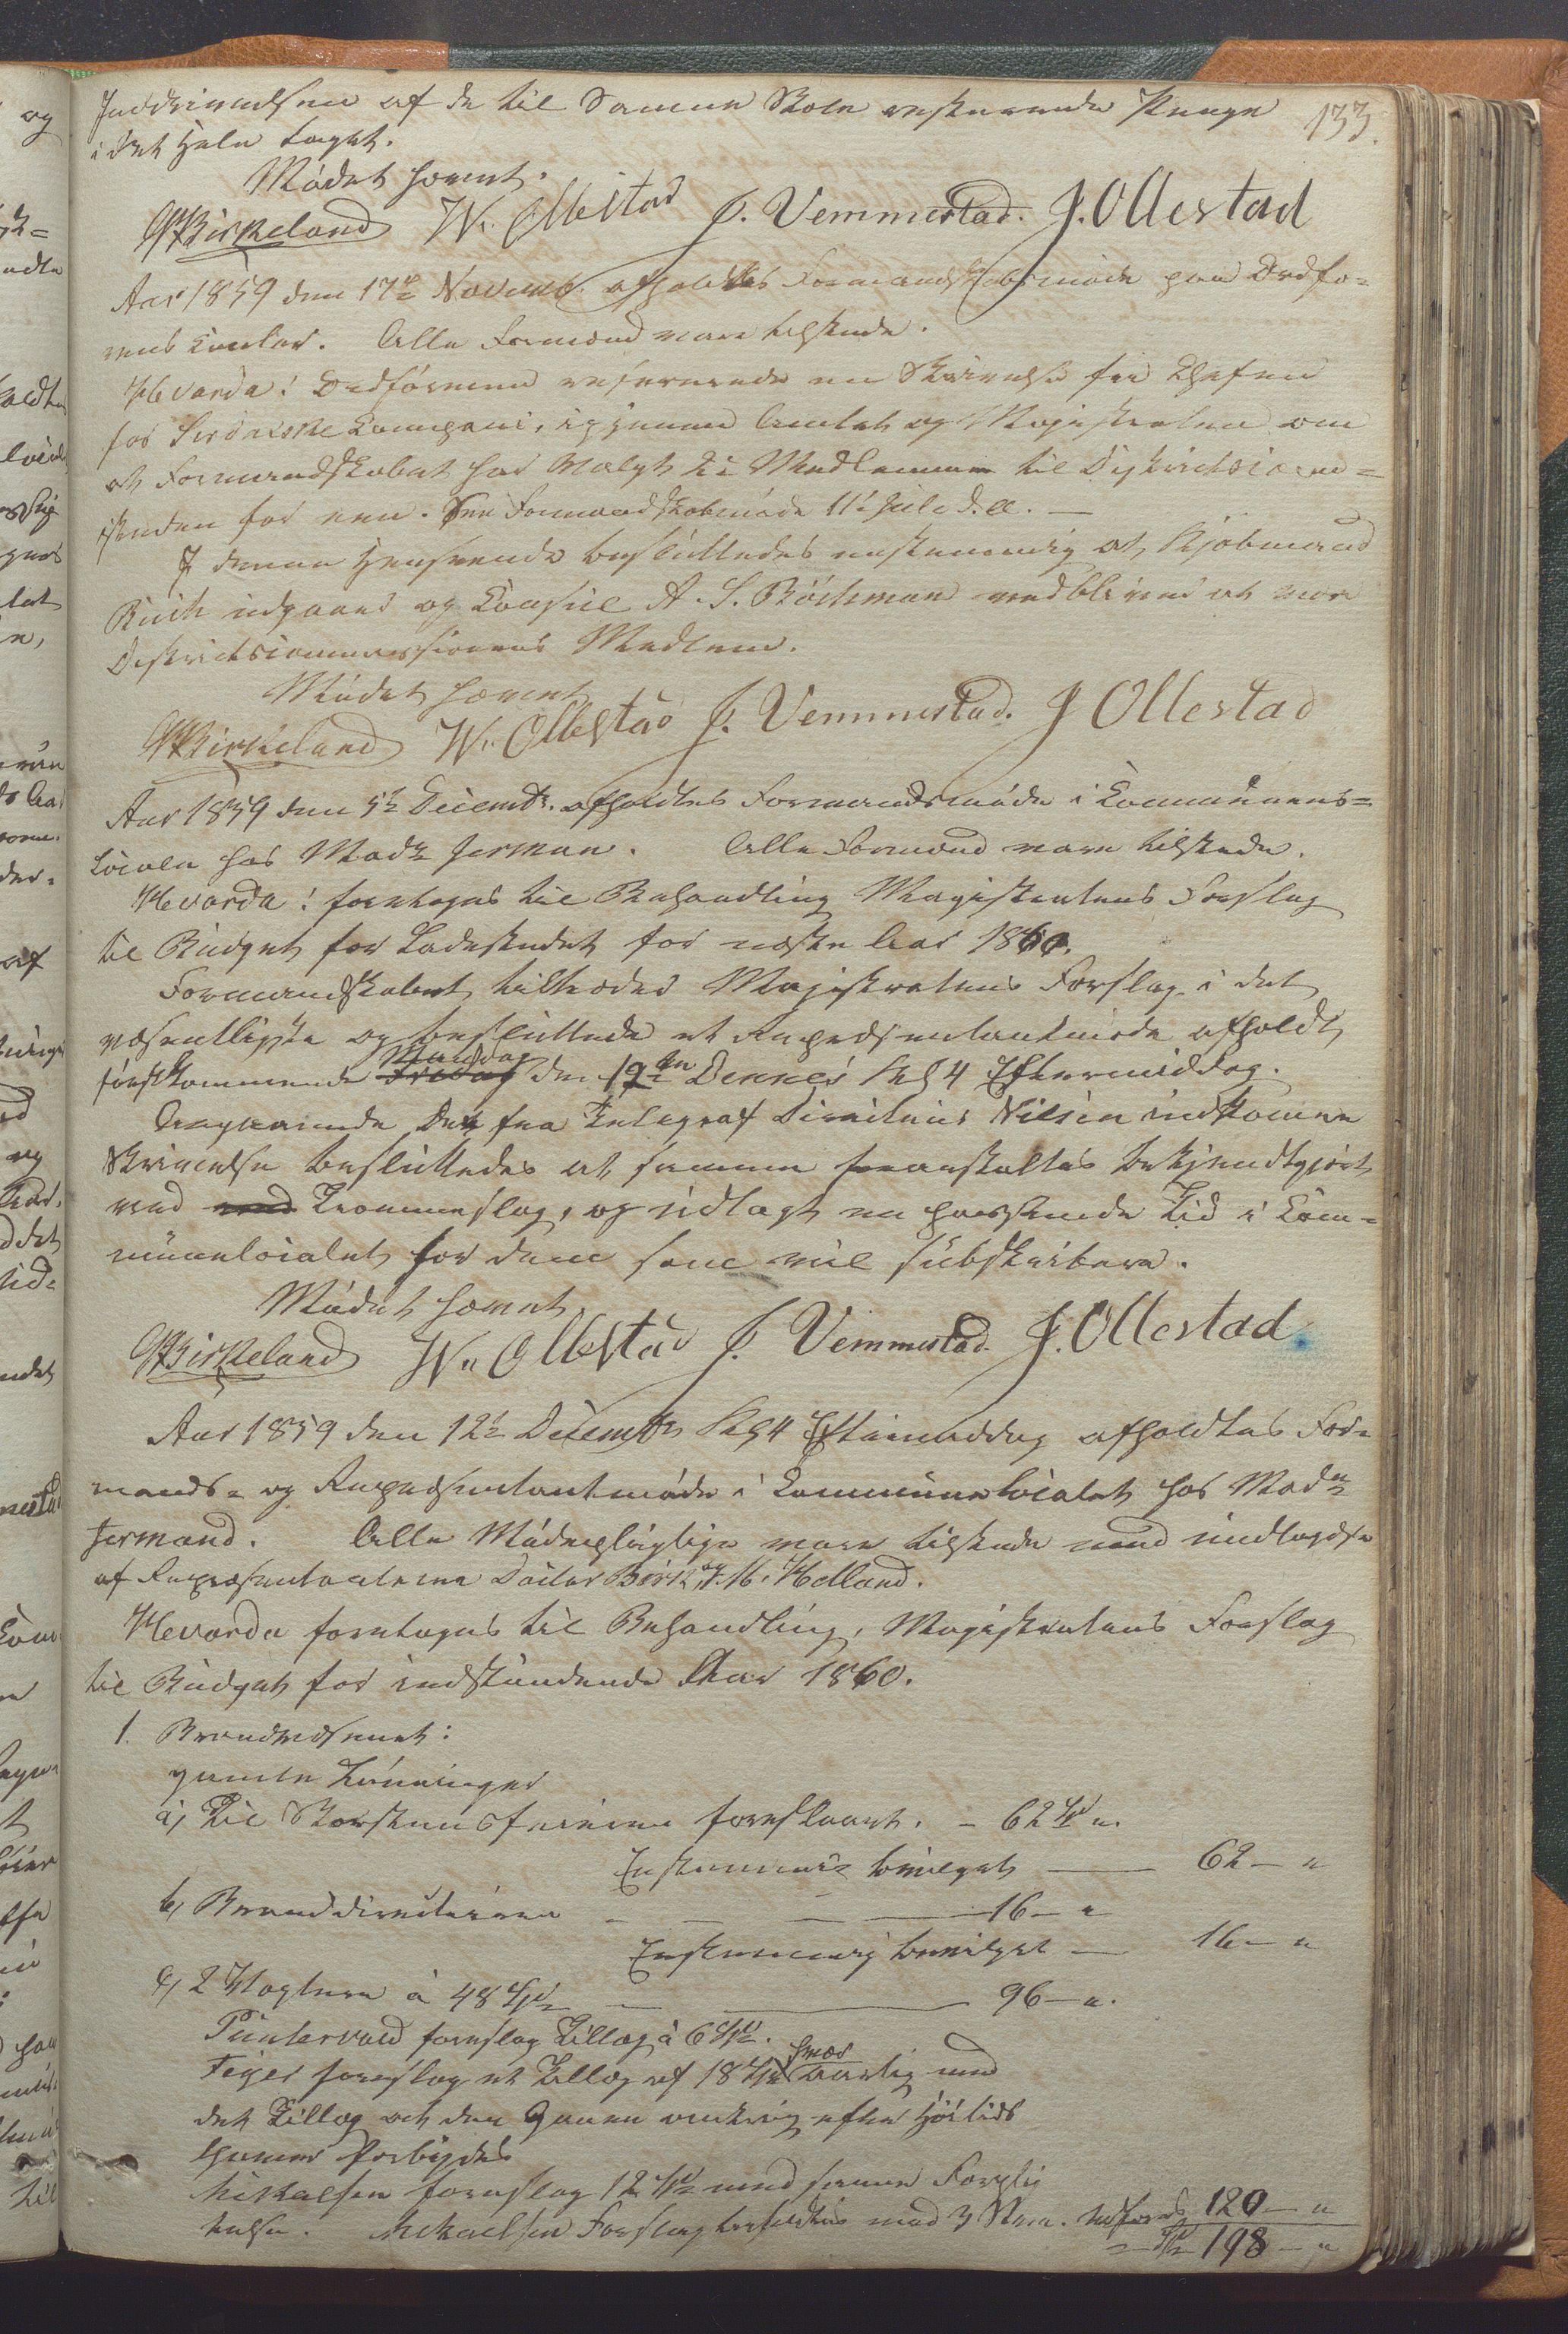 133.
Inddrivelsen af de til Samme Skole resterende Penge
i det Hele taget.
Mødet hævet.
Birkeland W. Ollestad J. Vemmestad. J. Ollestad
Aar 1859 den 17de Novemb. afholdtes Formandskabsmøde paa Ordfø-
rens Contor. Alle Formænd vare tilstede.
Hvorda: Ordføreren refererede en Skrivelse fra Chefen
for Sirdalske Compagni, igjennem Amtet og Magistraten om
at Formandskabet har valgt to Medlemmer til Districtscom-
for een. See Formandskabsmøde 11te Juli d. A. —
I denne Henseende besluttedes eenstemmig at Kjøbmand
Buch udgaaer og Consul A. S. Böckman vedbliver at være
Districtscommissionens Medlem.
Mødet hævet
Birkeland W. Ollestad J. Vemmestad. J Ollestad
Aar 1859 den 5te Decembr. afholdtes Formandsmøde i Communens-
Locale hos Madm Jerman. Alle Formænd vare tilstede.
Hvorda: foretoges til Behandling Magistratens Forslag
til Budget for Ladestedet for næste Aar 1860.
Formandskabet tiltræder Magistratens Forslag i det
væsentligste og besluttede et Repræsentantmøde afholdt
førstkommende Fredag Mandag den 12te Dennes Kl 4 Eftermiddag.
Angaaende Det fra Telegraf Directeur Nilsen indkomne
Skrivelse besluttedes at samme foranstaltes bekjendtgjort
ved med Trommeslag, og udlagt en passende Tid i Com-
munelocalet for dem som vil subskribere.
Mødet hævet
Birkeland W. Ollestad J. Vemmestad. J. Ollestad
Aar 1859 den 12te Decembr Kl 4 Eftermiddag afholdtes For-
mands- og Repræsentantmøde i Communelocalet hos Madm
Jermand. Alle Mødepligtige vare tilstede med undtagelse
af Repræsentanterne Doctor Birk og T. M. Helland.
Hvorda foretoges til Behandling, Magistratens Forslag
til Budget for indstundende Aar 1860.
1. Brandvæsenet:
gamle Lønninger
a, Til Skorsteensfeieren foreslaaet. - 62 Spd „.
Enstemmig bevilget — 62 — „
b, Branddirecteuren — 16 — „
Enstemmig bevilget — 16 — „
c, 2 Vægtere à 48 Spd — 96 — „.
Puntervold foreslog Tillæg à 6 Spd.
Feyer foreslog et Tillæg af 18 Spd hver aarlig med
det Tillæg at den Gaaen omkring efter Høitids
Forbydes
Mikalsen foreslog 12 Spd med samme Forplig
telse. Mikaelsen Forslag befaldtes med 7 Stem. Udføres 120 — „
Spd 198 — „